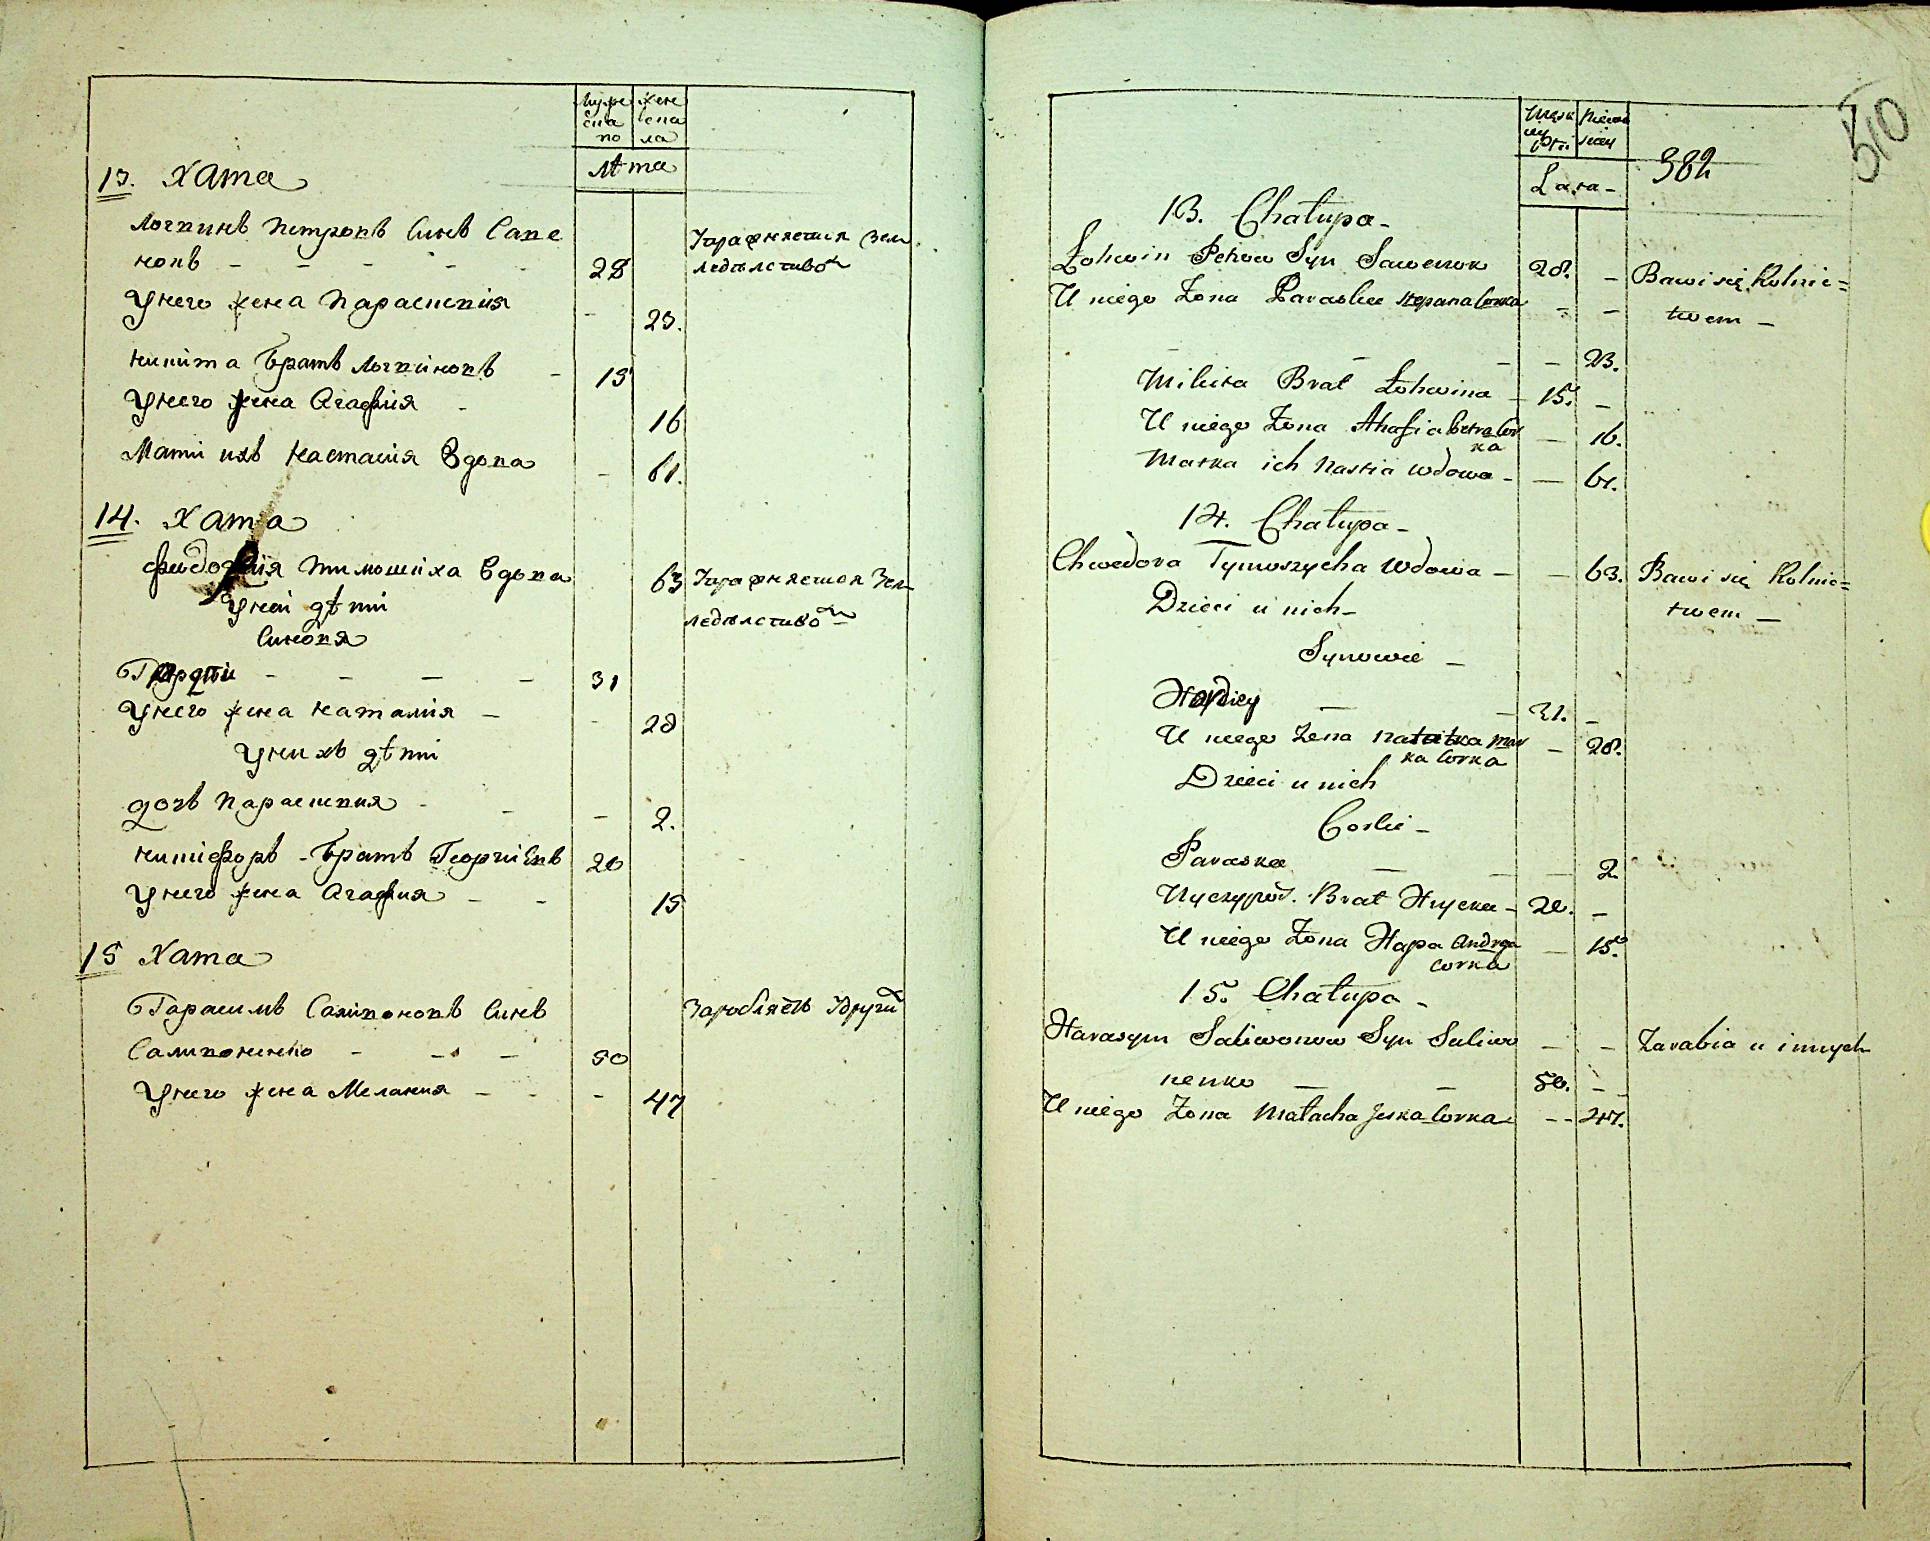 Муже
ска
по
жене
ска
ла
Лѣта
13. Хата
Логвинъ Петровъ Синъ Саве
новъ - - - - -
28
Упражняется Зем
ледѣлствоⷨ
Унего жена Параскевія
- 23.
Никита Братъ Логвиновъ - 15
Унего жена Агафия - 16
Мати ихъ Настасия Вдова - 61.
14. Хата
Феодосия Тимошиха Вдова 63 Упражняется Зем
ледѣлствоⷨ
Уней дѣти
Синовя
Гордѣи - - - - 31
Унего жена Наталия - - 28
Унихъ дѣти
дочъ Параскевия - - - 2.
Никифоръ - Братъ Георгиевъ 20
Унего жена Агафия - - 15
15 Хата
Гарасимъ Саливоновъ Синъ
Заробляетъ Удруги
Саливоненко - - - 50
Унего жена Мелания - - - 47
510
Męzk
iey
płci
Niewie
sciey
Lata -
382
13. Chałupa -
Łohwin Petrow Syn Sawenok 28. - Bawi się Rolnic=
twem -
U niego Żona Paraska Stepana Corka - -
- - - - 23.
Mikita Brat Łohwina - 15. -
U niego Żona Ahafia Petra Cor
ka
- 16.
Matka ich Nastia Wdowa - - 61.
14. Chałupa -
Chwedora Tymoszycha Wdowa - - 63. Bawi się Rolnic=
twem -
Dzieci u nich -
Synowie -
Hordiey - - 31. -
U niego Żona Natałka Mar
ka Corka
- 28.
Dzieci u nich
Corki -
Paraska - - - 2
Nyczypor. Brat Hrycka - 20. -
U niego Żona Hapa Andrya
Corka
- 15.
15. Chałupa -
Harasym Saliwonow Syn Saliwo - - Zarabia u innych
nenko - - 50. -
U niego Żona Małacha Jeska Corka - - 47.